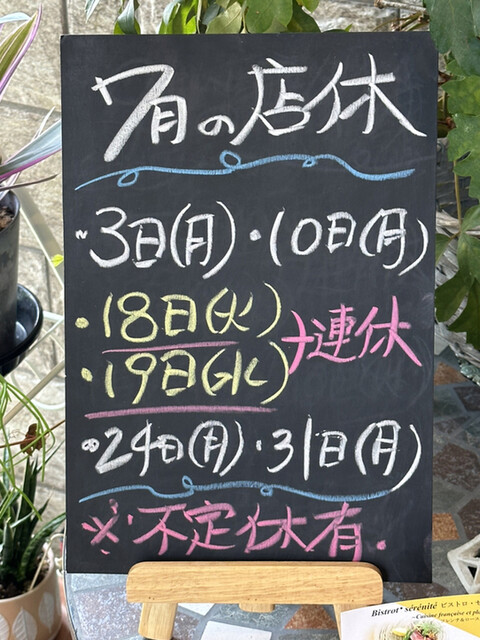 7月の店休
・3日(月)・10日(月)
・18日(火)
・19日(水)
連休
・24日(月)・31日(月)
※・不定休有.
Bistrot* sérénité ビストロ・セ
~Cuisine française et pl